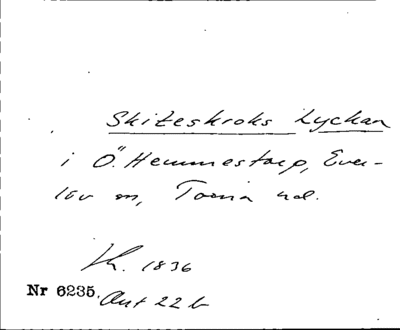 Skiteskroks Lyckan
i Ö. Hemmestorp, Ever-
löv sn, Torna hd.
1836
Nr 6235.
Akt 22 b